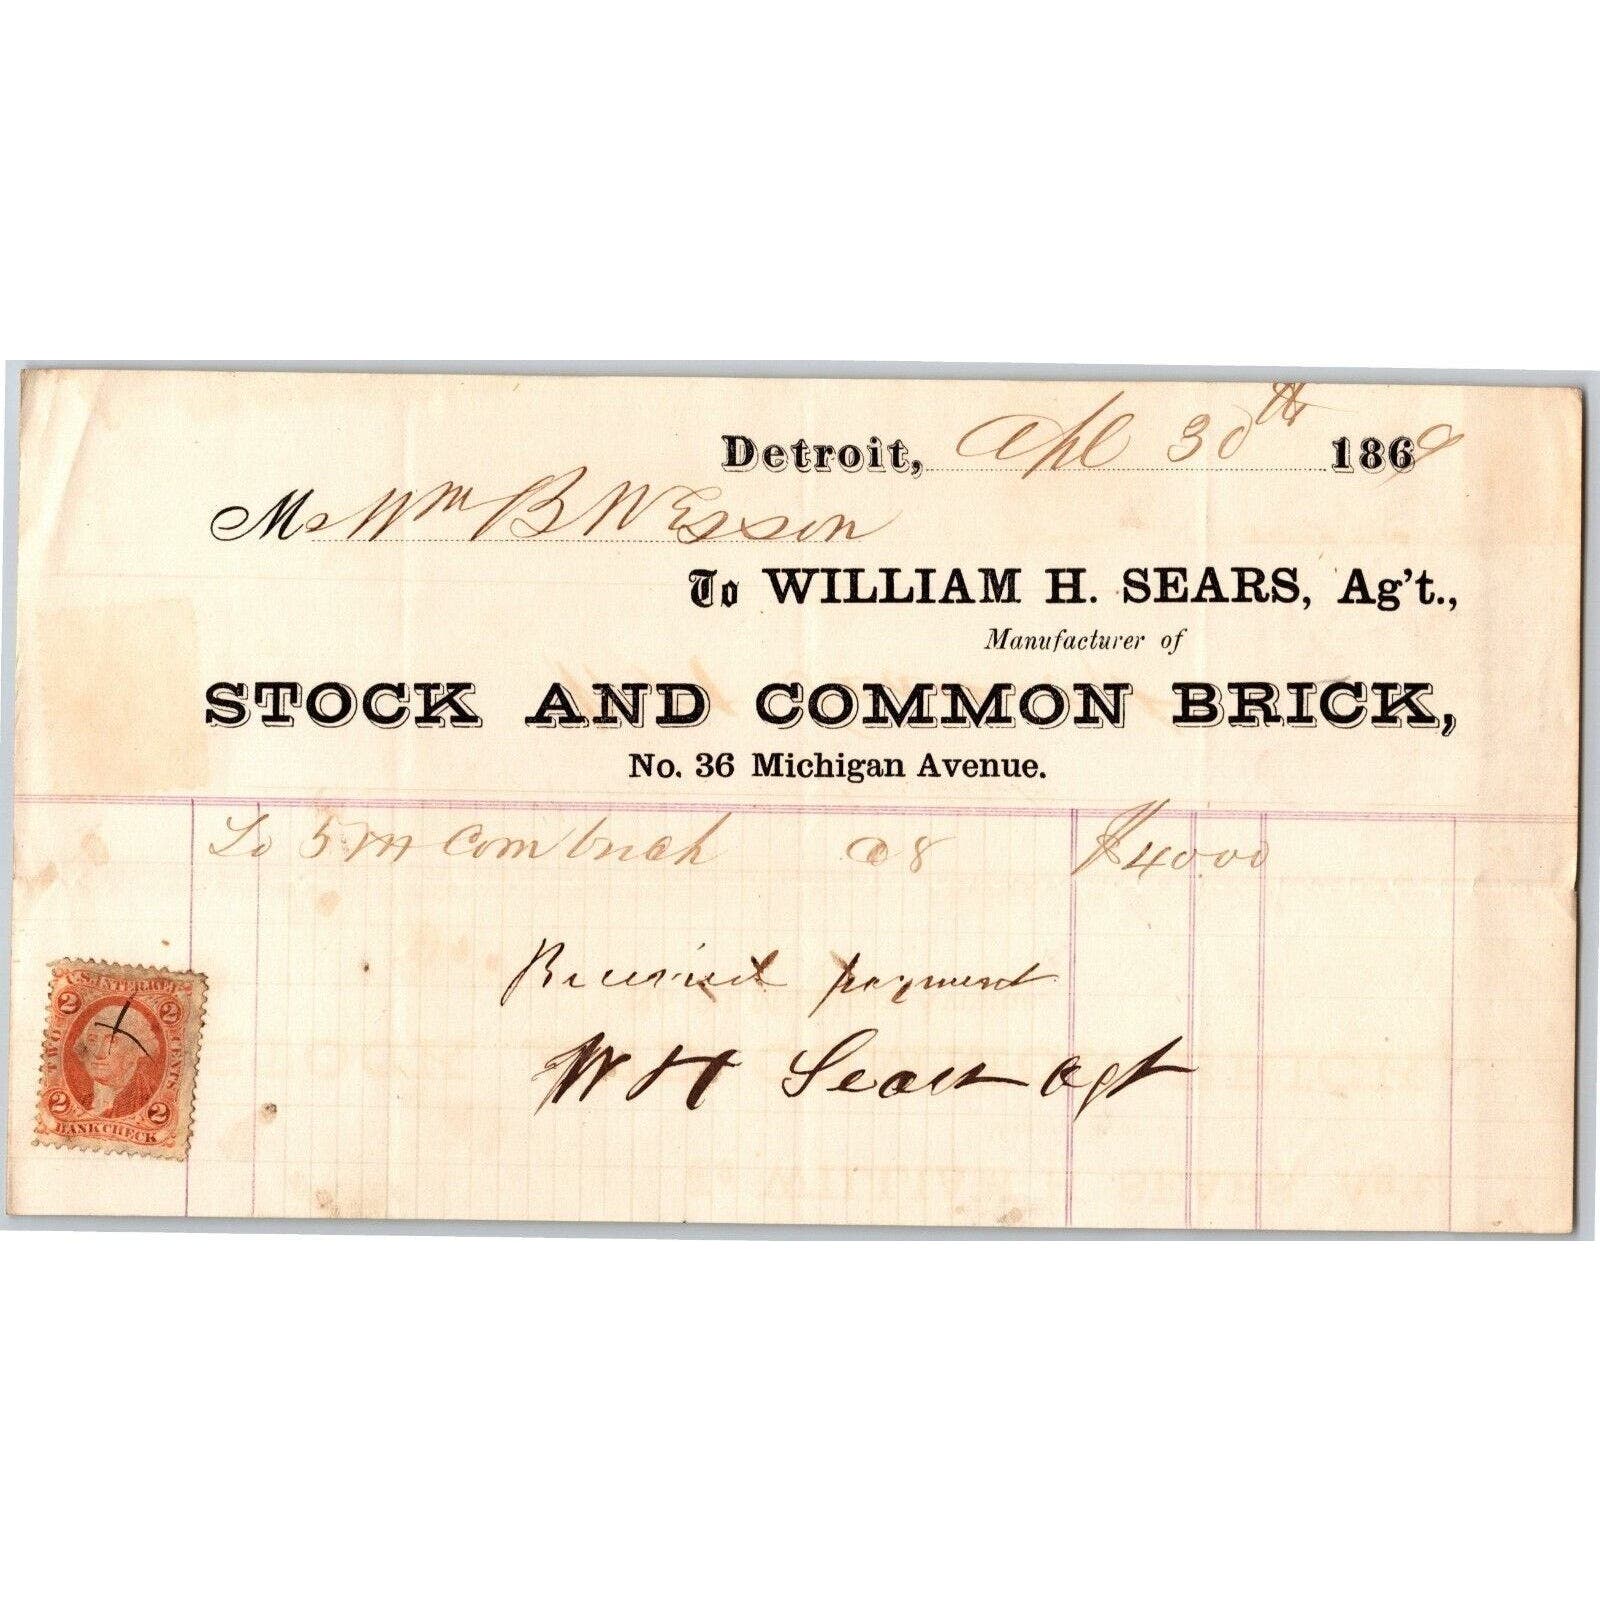 Detroit, Apl 30th 1869
Mr Wm B Wesson
To WILLIAM H. SEARS, Ag't.,
Manufacturer of
STOCK AND COMMON BRICK,
No. 36 Michigan Avenue.
To 5 M Com brick @ 8 $40.00
Received payment
W H Sears Agt
U.S. INTER. REV.
2 2
TWO CENTS
2 2
BANK CHECK